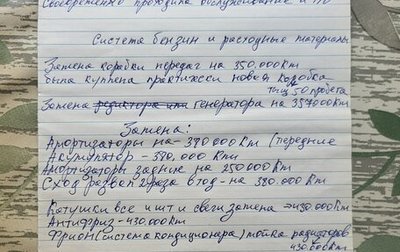 своевременно проходила обслуживание и ТО
Система бензин и расходные материалы
Замена коробки передач на 350,000км
была куплена практически новая коробка
тыщ 50 пробега
Замена генератора на 357000км
Замена:
Амортизаторы на - 390000км (передние
Акумулятор - 390.000 км
Амортизаторы задние на 250000км
Сход развол 2 раза в год - на 380.000км
Катушки все 4 шт и свечи замена → 430.000км
Антифриз - 430.000км
Фрион (система кондиционера) мойка радиаторов
430.600км